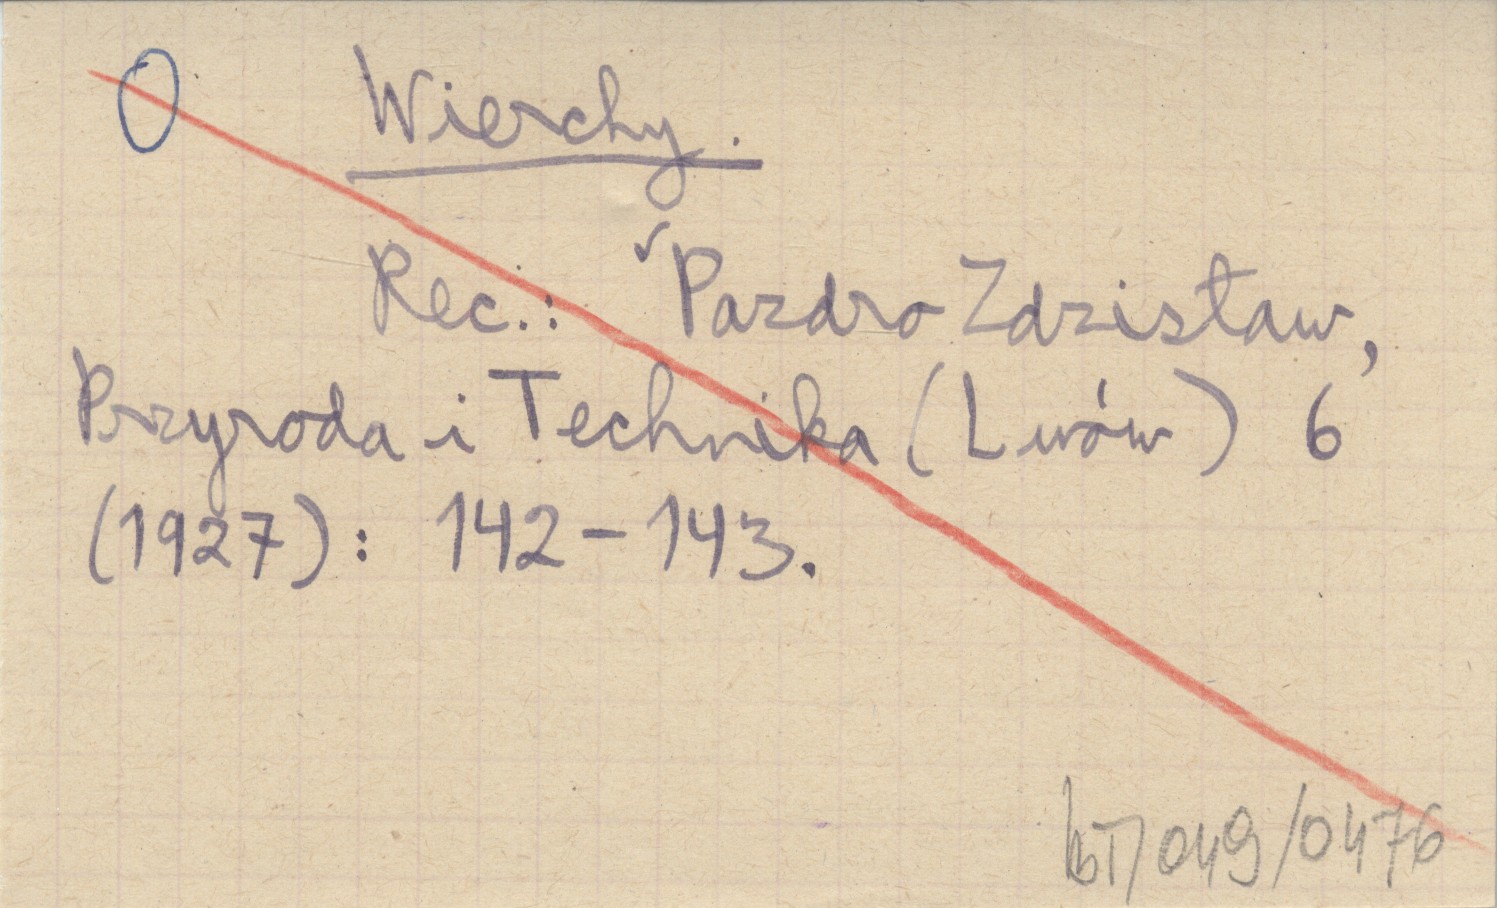 Wierchy.
Rec.: Pazdro Zdzisław,
Przyroda i Technika (Lwów) 6
(1927): 142-143.
bT/049/0476